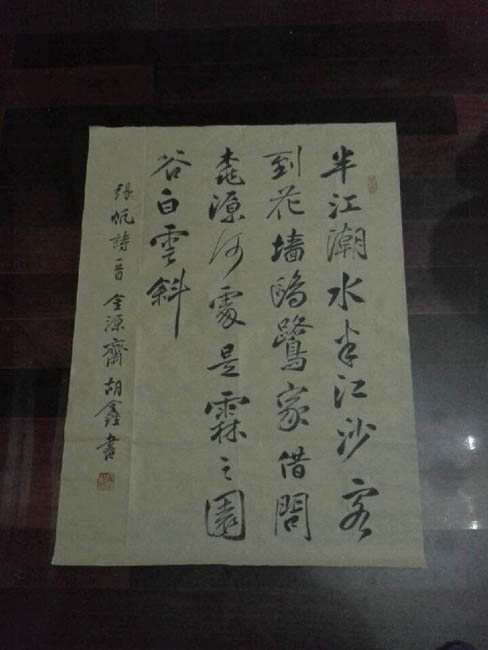 半江潮水半江沙客
到花墙鸥鹭家借問
桃源何處是霖之園
谷白雲斜
張帆詩一首 金源齋胡鑫書